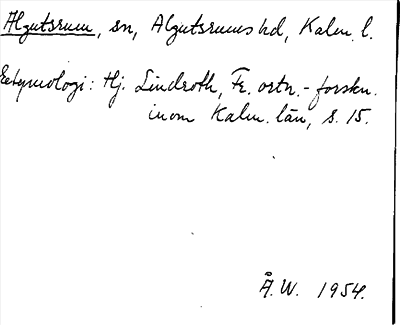 Algutsrum, sn, Algutsrums hd, Kalm. l.
Etymologi: Hj. Lindroth, Fr. ortn.-forskn.
inom Kalm. län, s. 15.
Å.W. 1954.